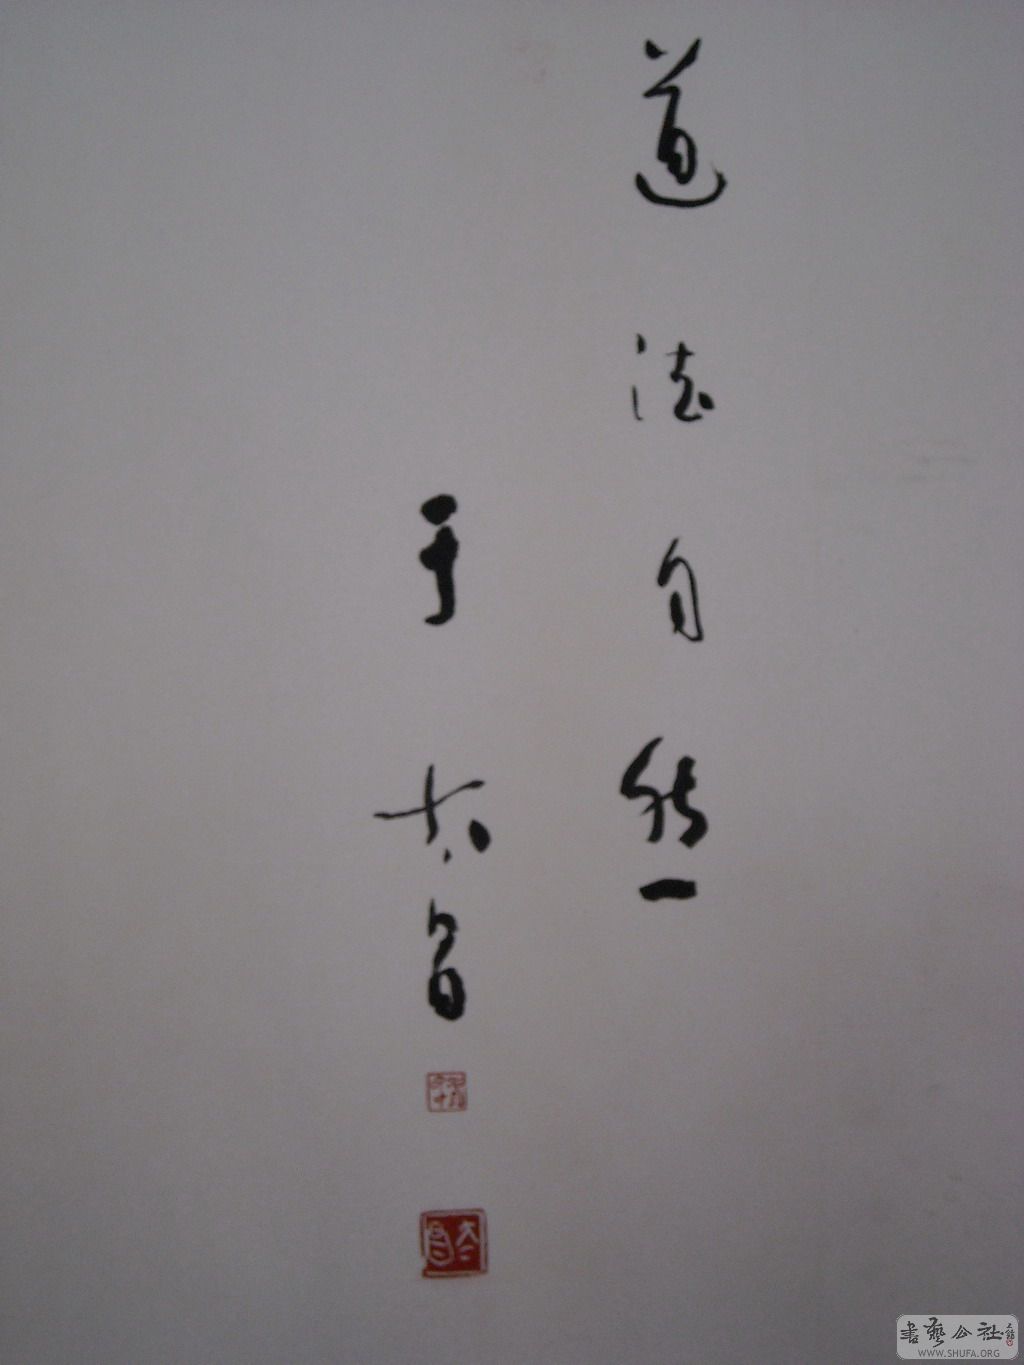 道法自然
于太昌
太昌
書藝公社
WWW.SHUFA.ORG